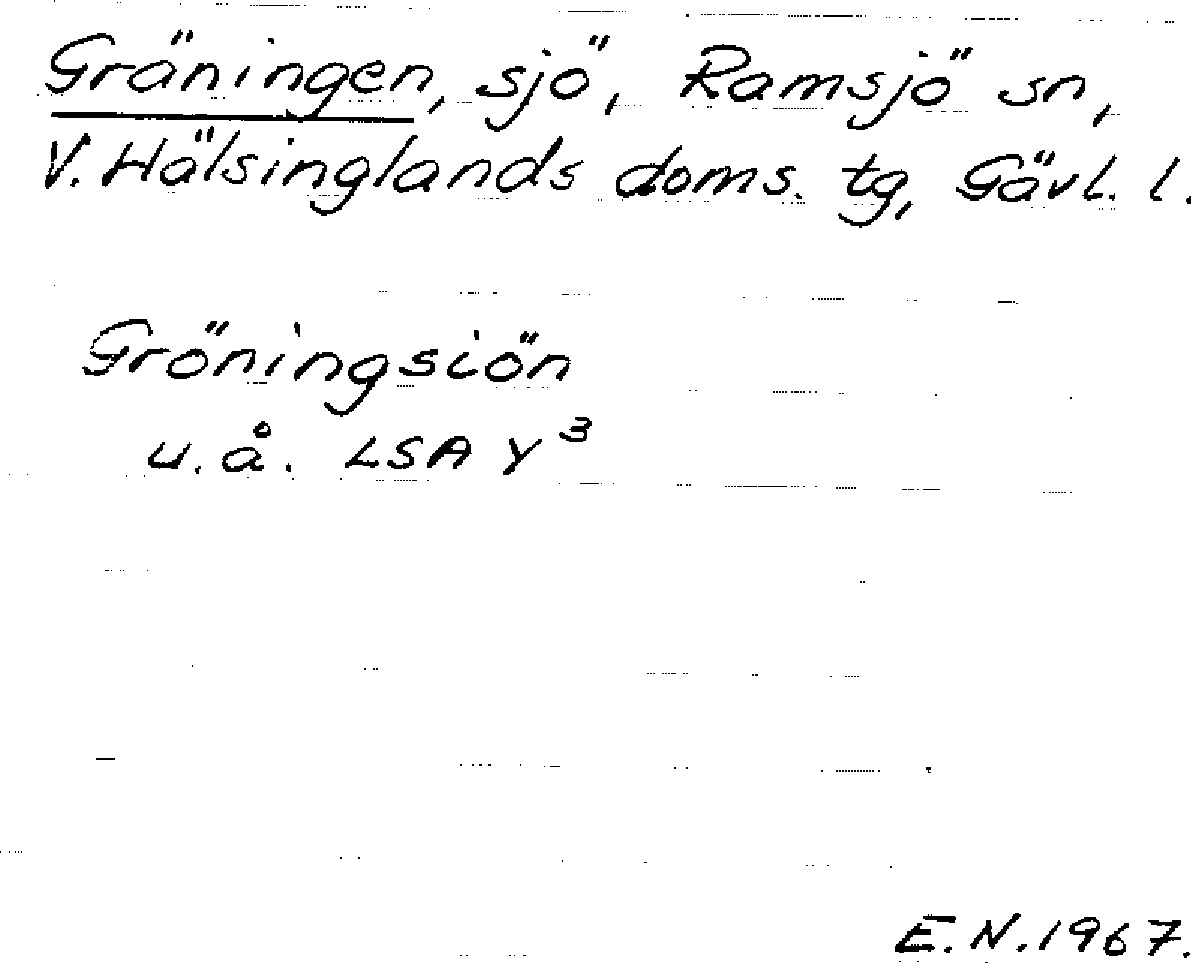 Gräningen, sjö, Ramsjö sn,
V. Hälsinglands doms. tg, Gävl. l.
Gröningsiön
u. å. LSA Y³
E. N. 1967.